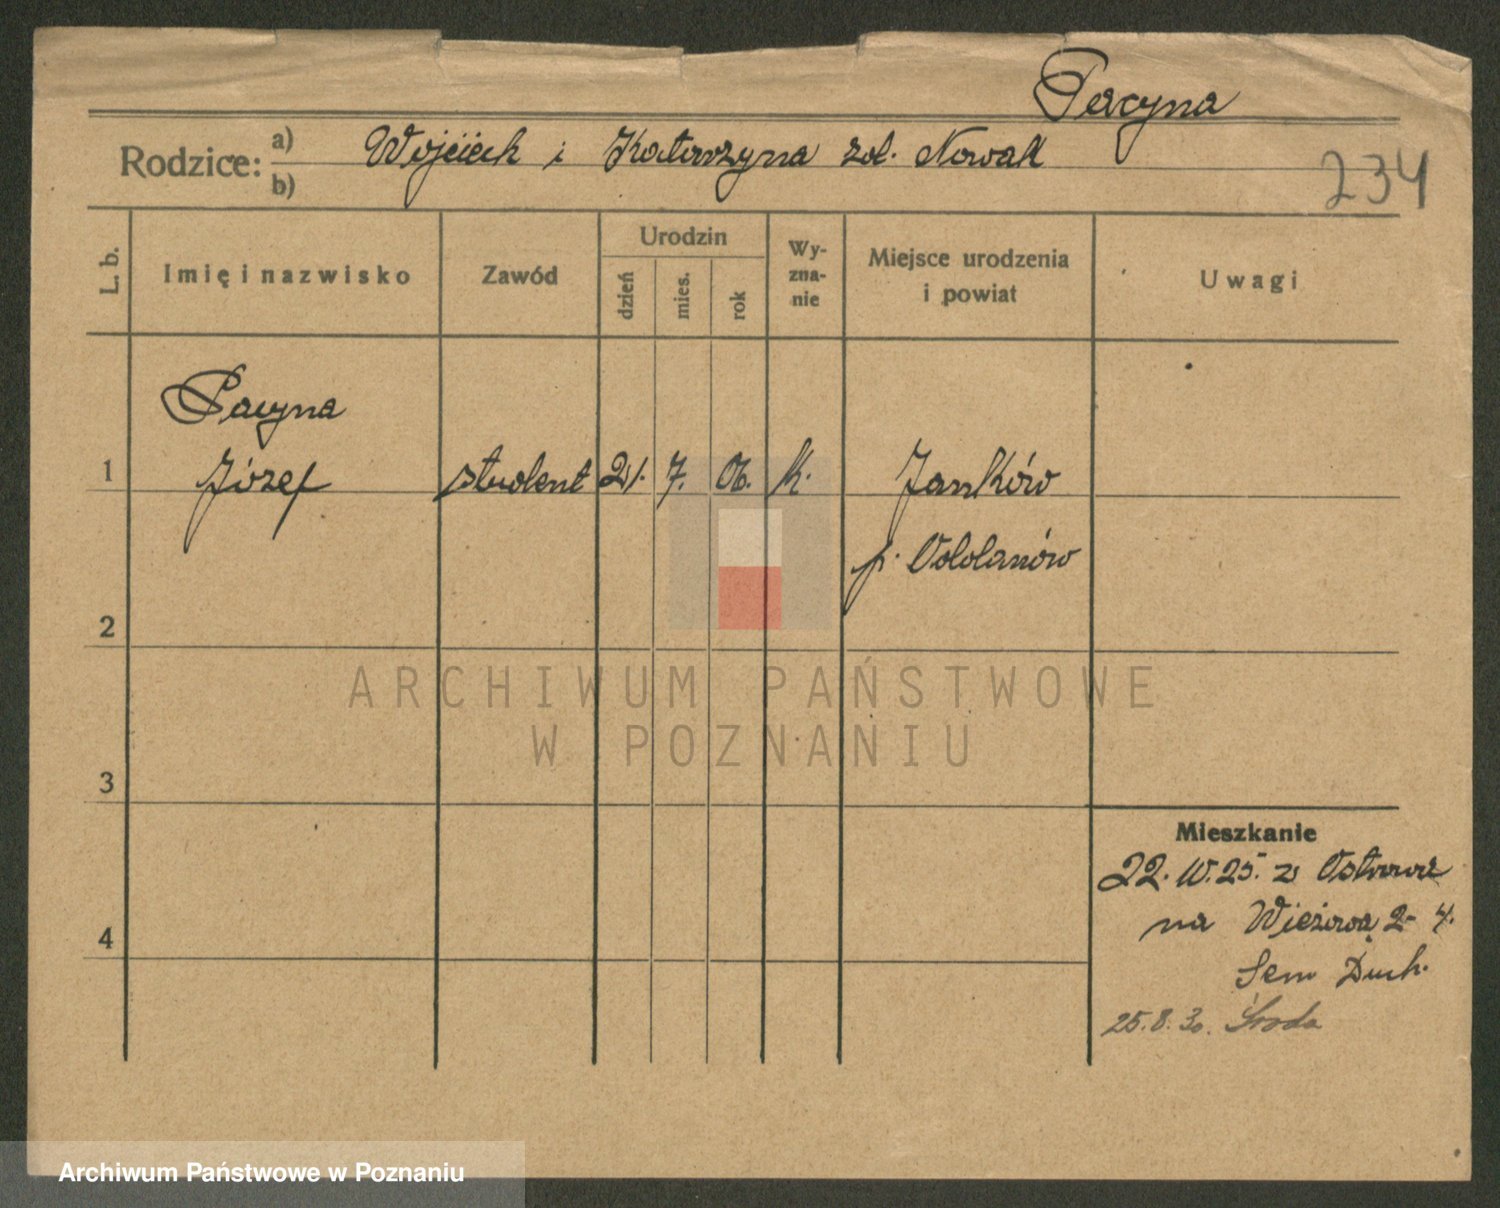 Pacyna
Rodzice: a) b) Wojciech i Katarzyna zd. Nowak
234
L. b. Imię i nazwisko Zawód Urodzin dzień mies. rok Wyznanie Miejsce urodzenia i powiat Uwagi
Pacyna
1 Józef student 21. 7. 06. k. Janków
p. Odolanów
2
ARCHIWUM PAŃSTWOWE
W POZNANIU
3
Mieszkanie
22. 10. 25. z Ostrowa
na Wieżowa 2-4.
4
Sem Duch.
25.8.30. Środa
Archiwum Państwowe w Poznaniu